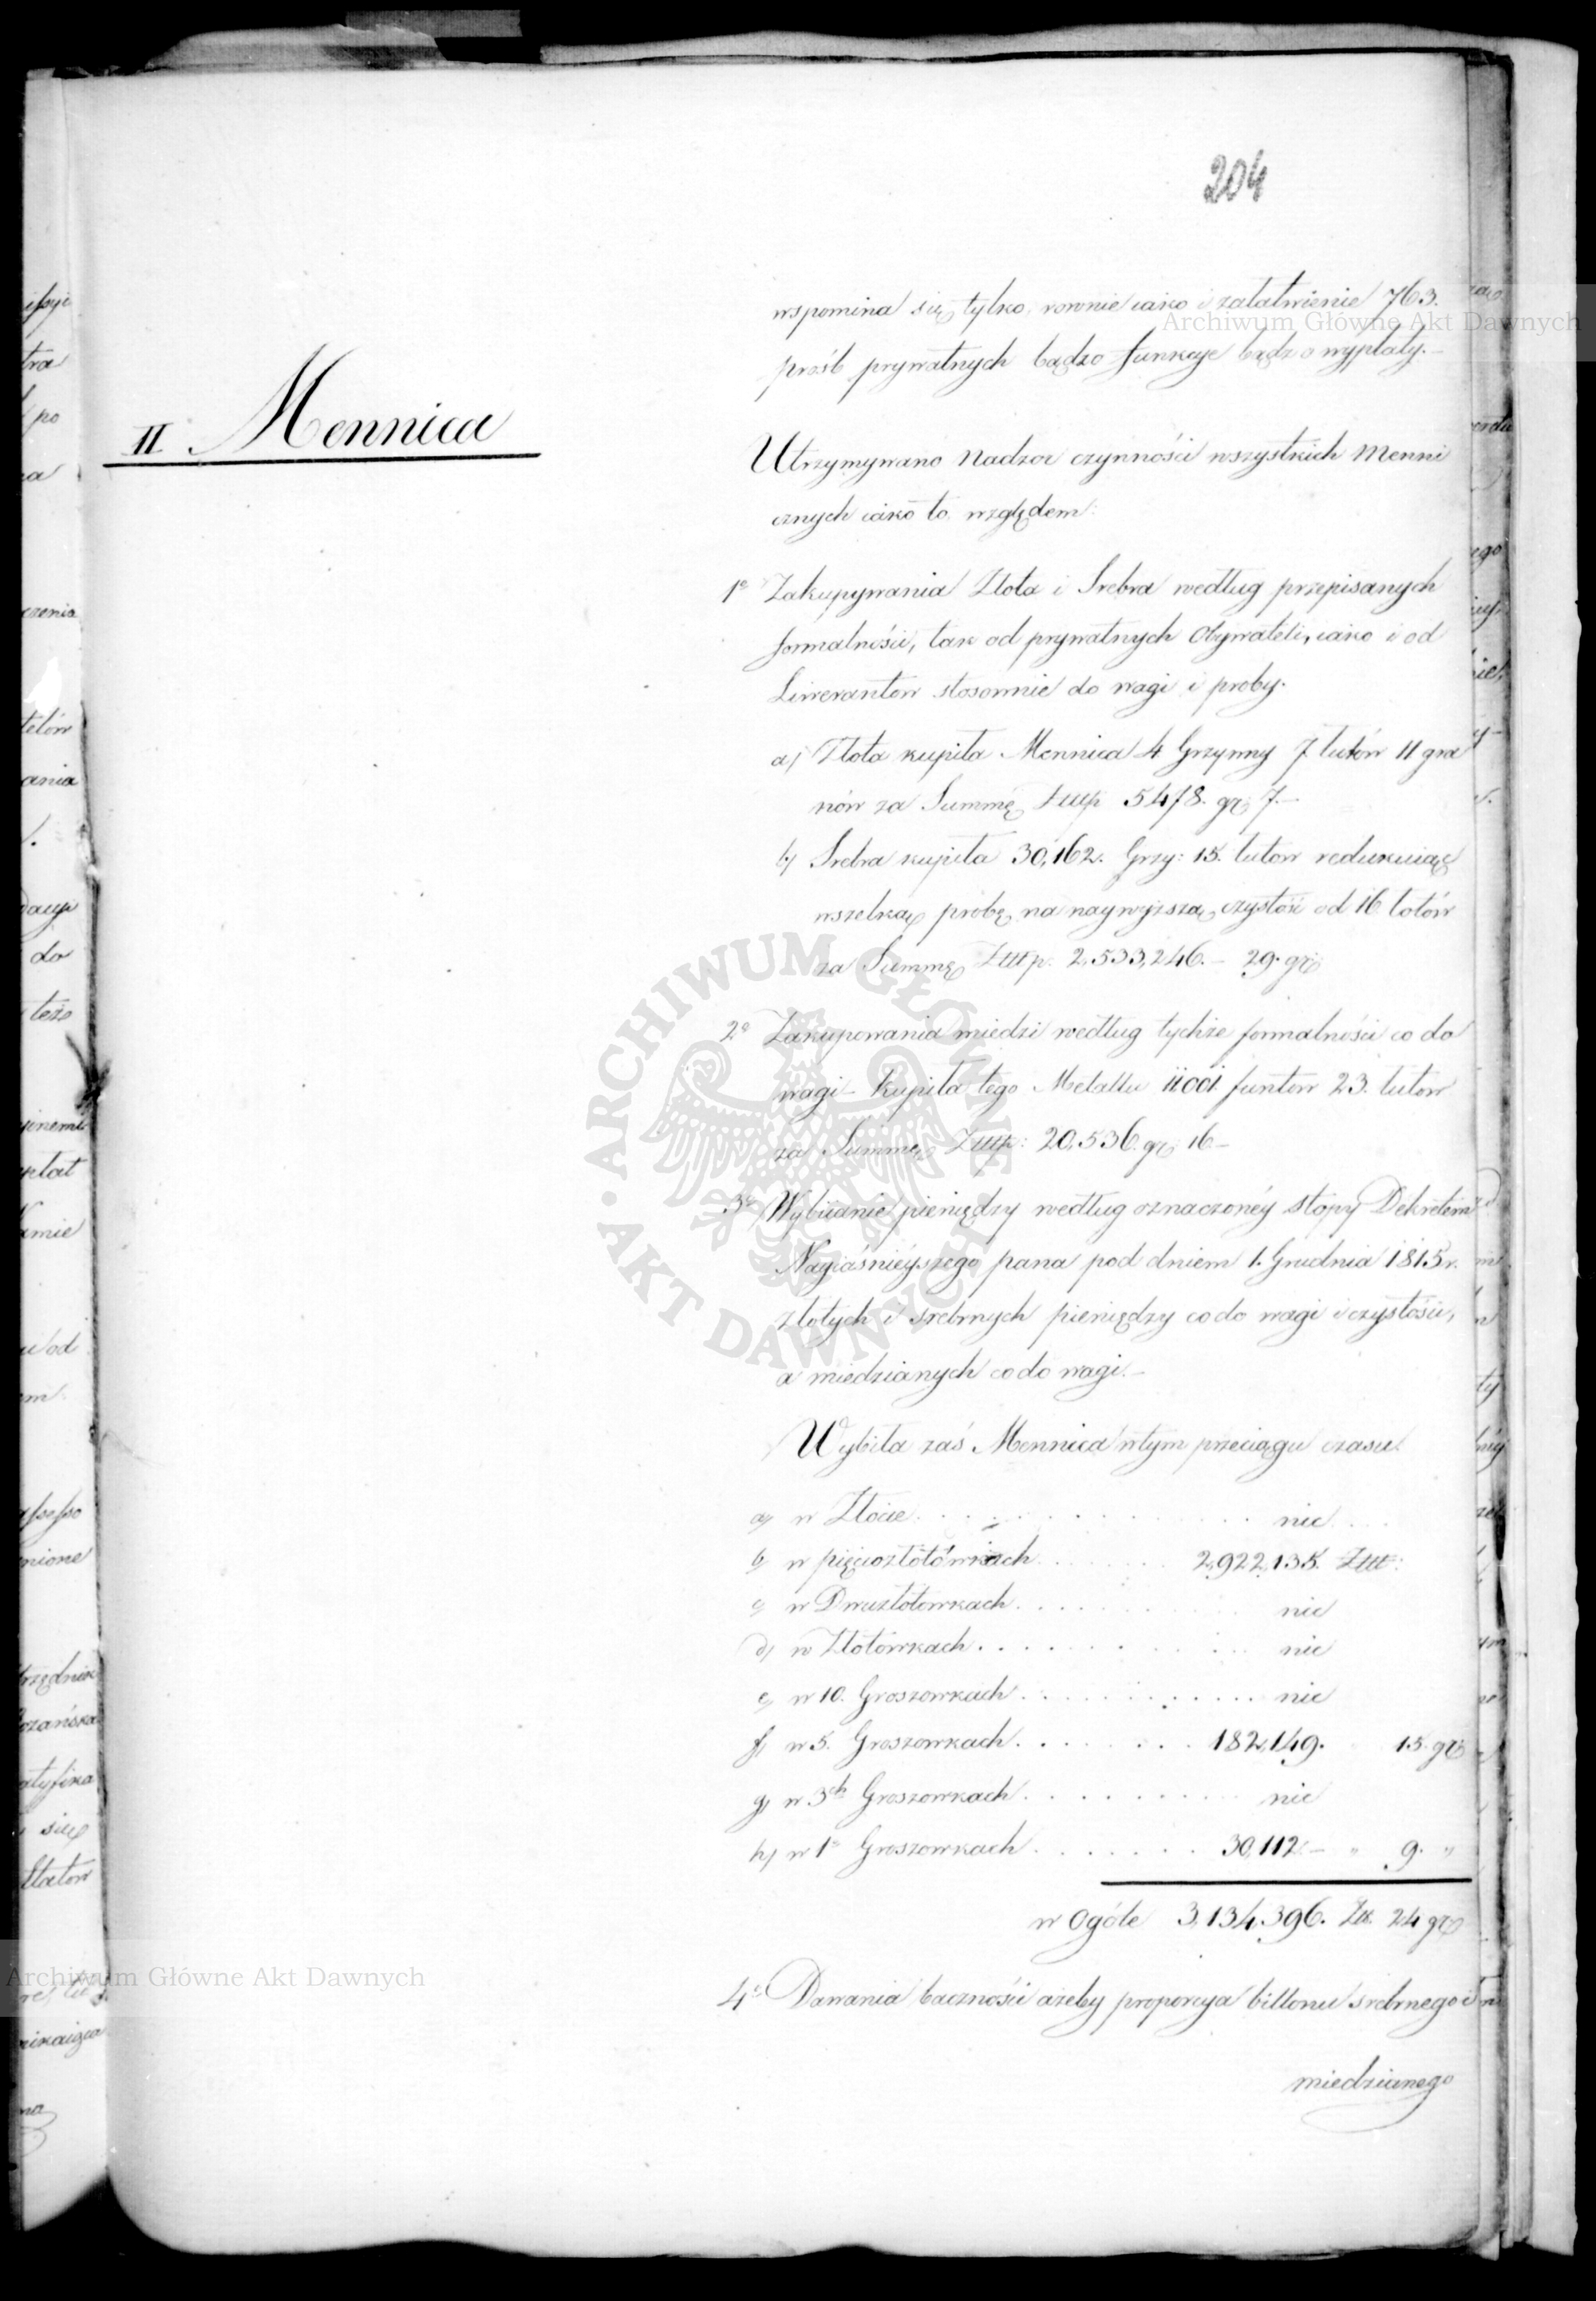 204
wspomina się tylko, rownie iako i załatwienie 763.
prośb prywatnych bądz o funkcye bądz o wypłaty.
II. Mennica
Utrzymywano Nadzor czynności wszystkich Menni
cznych iako to względem:
1° Zakupywania Złota i Srebra według przepisanych
formalności, tak od prywatnych Obywateli, iako i od
Liwerantow stosownie do wagi i proby.
a) Złota kupiła Mennica 4 Grzywny 7 łutów 11 gra
nów za Summę Złłłp 5478. gr: 7.—
b) Srebra kupiła 30,162. Grzy: 15. łutow redukuiąc
wszelką probę na naywyższą czystość od 16 łotów
za Summę Złłłp. 2,533,246.— 29. gr:
2° Zakupowania miedzi według tychże formalności co do
wagi – kupiła tego Metallu 11001. funtow 23. łutow
za Summę Złłłp: 20,536. gr: 16—
3° Wybiianie pieniędzy według oznaczonéy stopy Dekretem
Nayiaśnieyszego pana pod dniem 1. Grudnia 1815 r.
złotych i srebrnych pieniędzy co do wagi i czystości,
a miedzianych co do wagi.—
Wybiła zaś Mennica w tym przeciągu czasu.
a) w Złocie . . . . . nic . .
b) w pięciozłotówkach . . . . . 2,922,135. Złłł:
c) w Dwuzłotowkach . . . . . nic
d) w Złotówkach . . . . . nic
e) w 10. Groszowkach . . . . . nic
f) w 5. Groszowkach . . . . . 182,149. 15. gr:
g) w 3ch Groszowkach . . . . . nic
h) w 1° Groszowkach . . . . . 30,112.— " 9. "
w Ogóle 3,134,396. Złł. 24 gr:
4° Dawania baczności ażeby proporcya billonu srebrnego i
miedzianego
Archiwum Główne Akt Dawnych
ARCHIWUM GŁÓWNE AKT DAWNYCH
Archiwum Główne Akt Dawnych